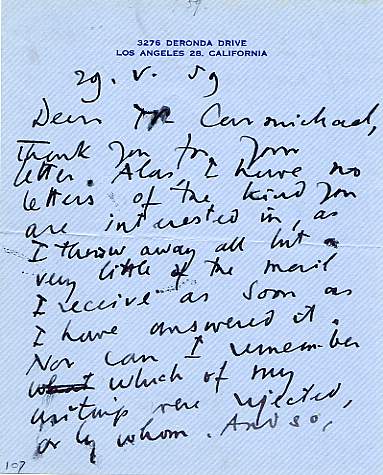 3276 DERONDA DRIVE
LOS ANGELES 28, CALIFORNIA
29. V. 59
Dear Mr Carmichael,
Thank you for your
letter. Alas, I have no
letters of the kind you
are interested in, as
I throw away all but a
very little of the mail
I receive as soon as
I have answered it.
Nor can I remember
what which of my
writings were rejected,
or by whom. And so,
107